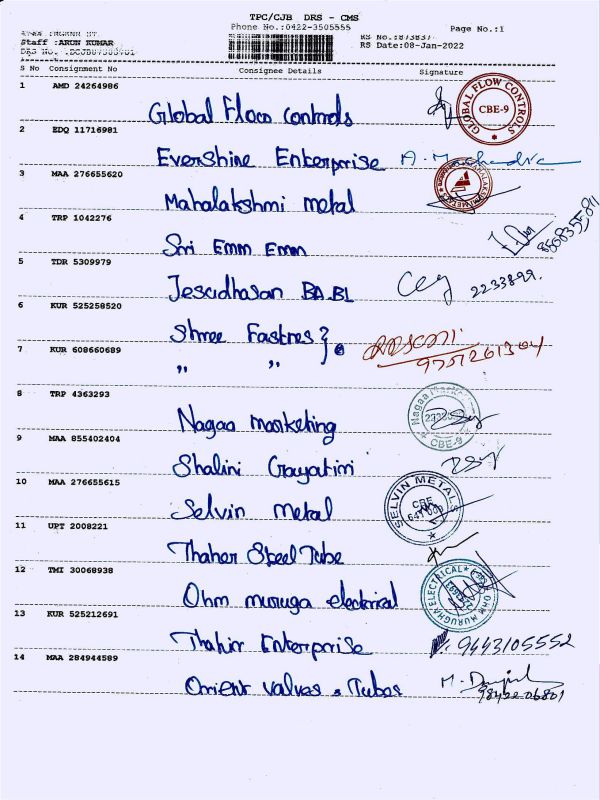 TPC/CJB DRS - CMS
Phone No.:0422-3505555
Page No.:1
Staff :ARUN KUMAR
RS No.:873837
RS Date:08-Jan-2022
S No Consignment No Consignee Details Signature
1 AMD 24264986
Global Flow Controls
GLOBAL FLOW CONTROLS CBE-9
2 EDQ 11716981
Evershine Enterprise
3 MAA 276655620
Mahalakshmi metal
4 TRP 1042276
Sri Emm Emm
8668355811
5 TDR 5309979
Jesudhasan BA.BL
2233899.
6 KUR 525258520
Shree Fastnes
7 KUR 608660689
" "
9751261304
8 TRP 4363293
Nagaa marketing
CBE-9
9 MAA 855402404
Shalini Gayatiri
10 MAA 276655615
Selvin Metal
SELVIN METALS CBE
11 UPT 2008221
Thaher Steel Tube
12 TMI 30068938
Ohm muruga electrical
OHM MURUGHA ELECTRICAL
13 KUR 525212691
Thahir Enterprise
9443105552
14 MAA 284944589
Orient valves & Tubes
98422 06801